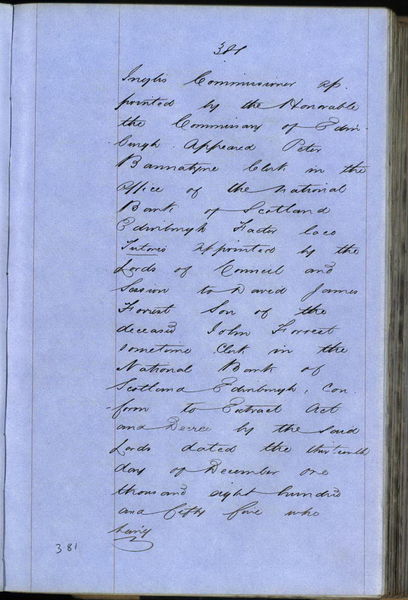 381
Inglis Commissioner ap-
pointed by the Honorable
the Commissary of Edin-
burgh. Appeared Peter
Bannatyne Clerk in the
Office of the National
Bank of Scotland
Edinburgh Factor loco
Tutoris appointed by the
Lords of Council and
Session to David James
Forrest Son of the
deceased John Forrest
sometime Clerk in the
National Bank of
Scotland Edinburgh, con-
form to Extract Act
and Decree by the said
Lords dated the thirteenth
day of December one
thousand eight hundred
and fifty five who
being
381